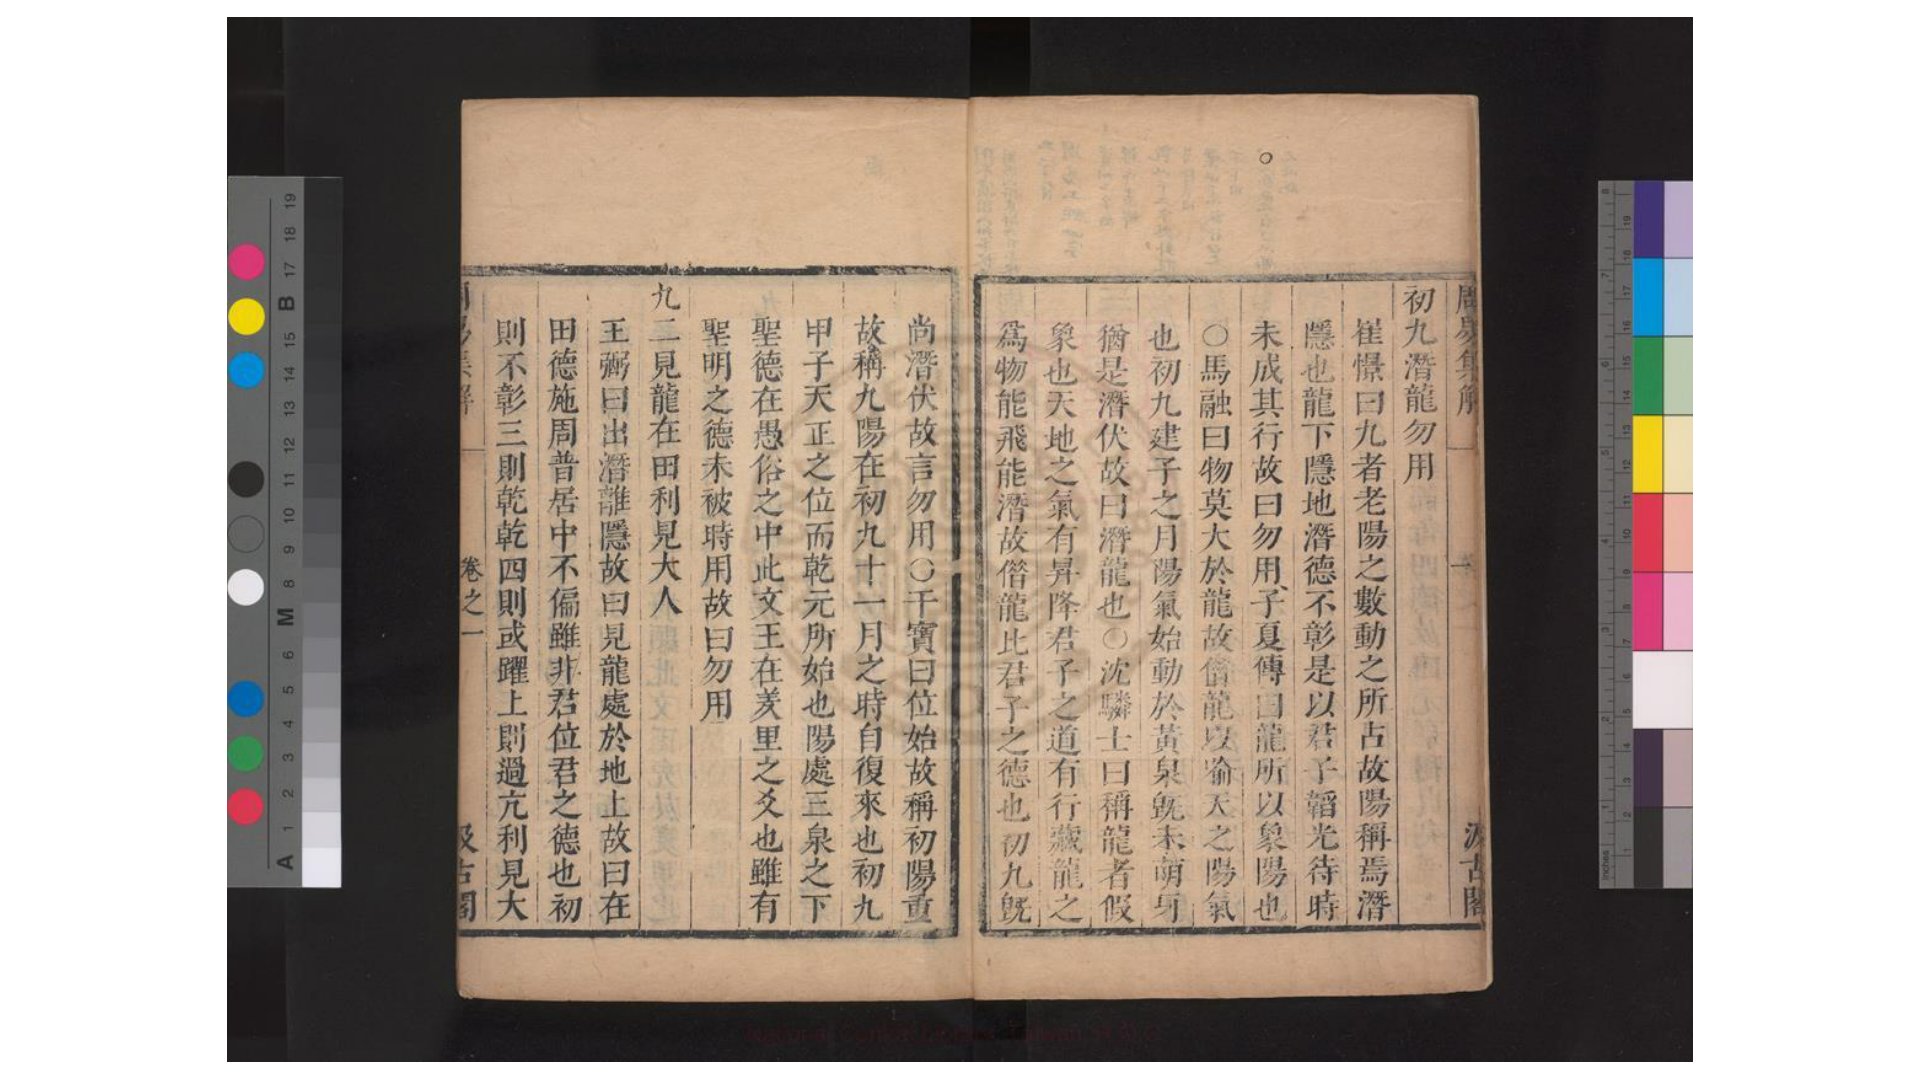 初九潛龍勿用
崔憬曰九者老陽之數動之所占故陽稱焉潛
隱也龍下隱地潛德不彰是以君子韜光待時
未成其行故曰勿用子夏傳曰龍所以象陽也
○馬融曰物莫大於龍故僭龍以喻天之陽氣
也初九建子之月陽氣始動於黃泉旣未萌牙
猶是潛伏故曰潛龍也○沈驎士曰稱龍者假
象也天地之氣有昇降君子之道有行藏龍之
爲物能飛能潛故僭龍比君子之德也初九旣
尚潛伏故言勿用○干寶曰位始故稱初陽重
故稱九陽在初九十一月之時自復來也初九
甲子天正之位而乾元所始也陽處三泉之下
聖德在愚俗之中此文王在羑里之爻也雖有
聖明之德未被時用故曰勿用
九二見龍在田利見大人
王弼曰出潛離隱故曰見龍處於地上故曰在
田德施周普居中不偏雖非君位君之德也初
則不彰三則乾乾四則或躍上則過亢利見大
周易集解 卷之一 汲古閣